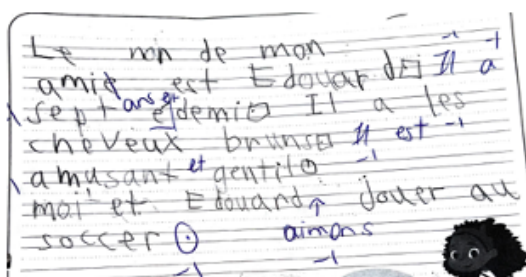 Le nom de mon
amie est Edouard. Il a
sept ans et demi. Il a les
cheveux bruns. Il est
amusant et gentil.
moi et Edouard ↑ jouer au
soccer. aimons
-1 -1